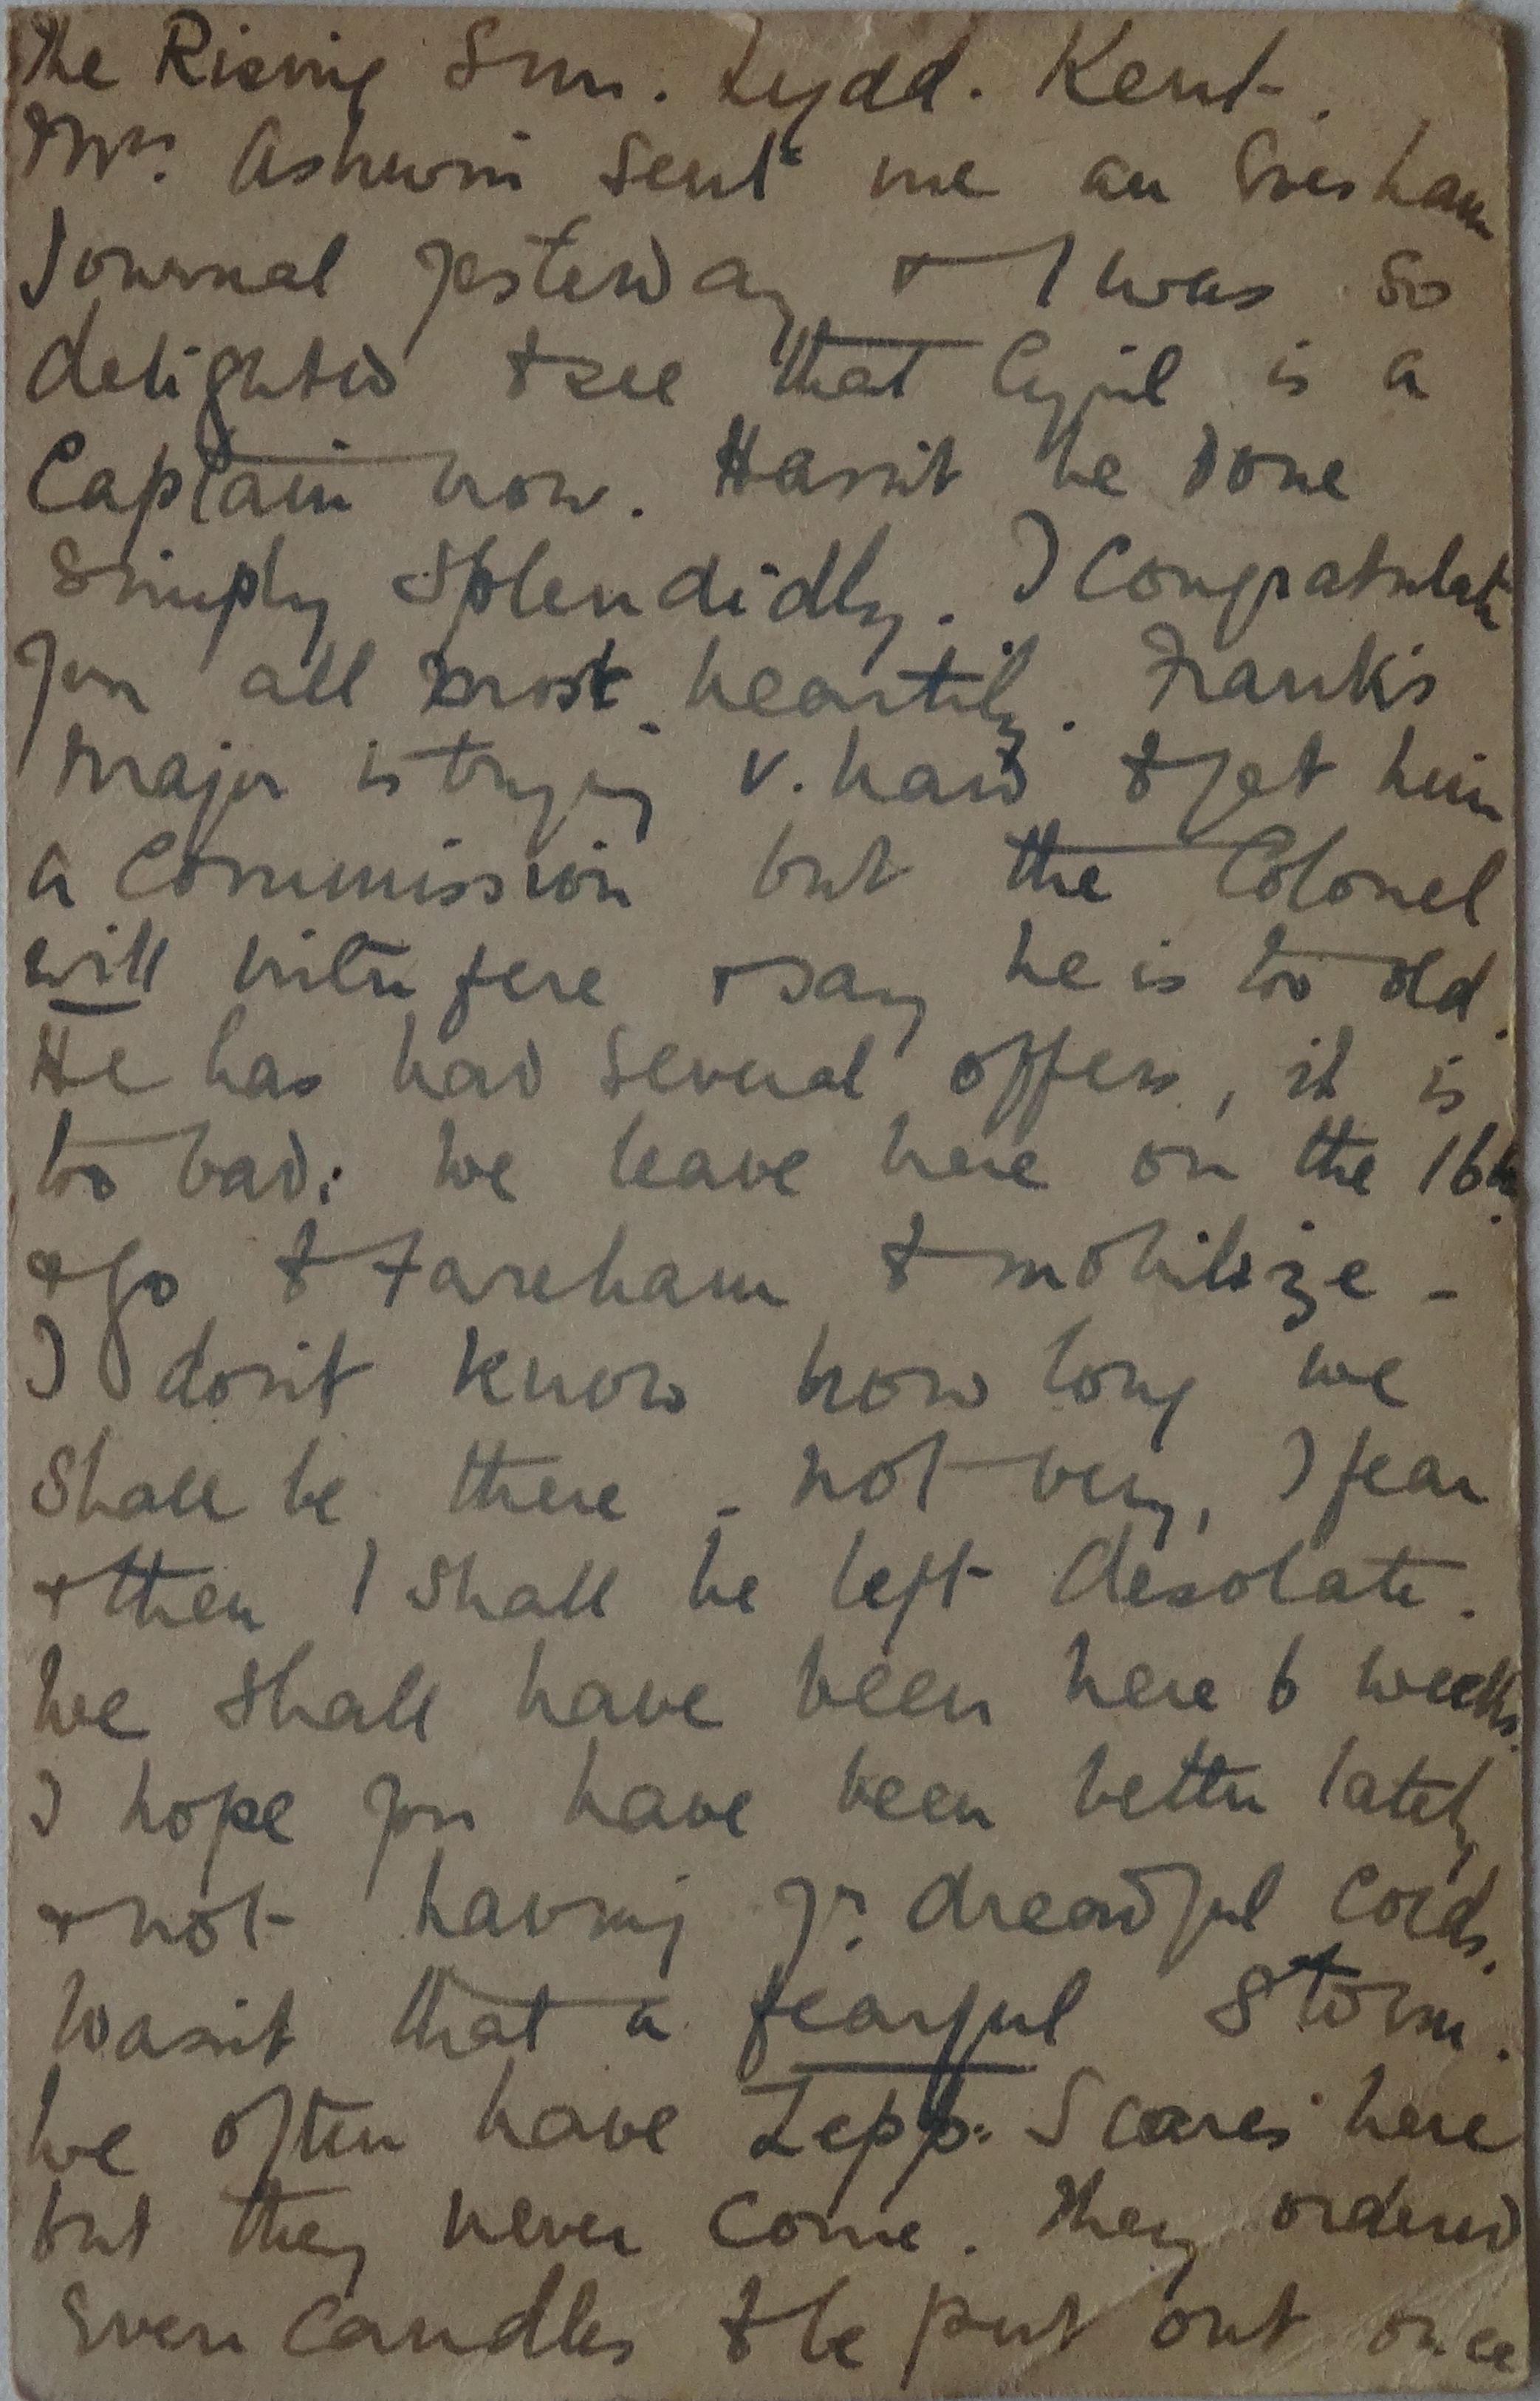 The Rising Sun. Lydd. Kent.
Mrs. Ashwin sent me an Evesham
Journal yesterday & I was so
delighted to see that Cyril is a
Captain now. Hasn't he done
simply splendidly. I congratulate
you all most heartily. Frank's
Major is trying v. hard to get him
a Commission but the Colonel
will interfere & say he is too old.
He has had several offers, it is
too bad: We leave here on the 16th.
& go to Fareham to mobilize -
I don't know how long we
shall be there - not very, I fear
& then I shall be left desolate.
We shall have been here 6 weeks.
I hope you have been better lately
& not having yr. dreadful colds.
Wasn't that a fearful storm.
We often have Zepp: Scares here
but they never come. They ordered
even candles to be put out once